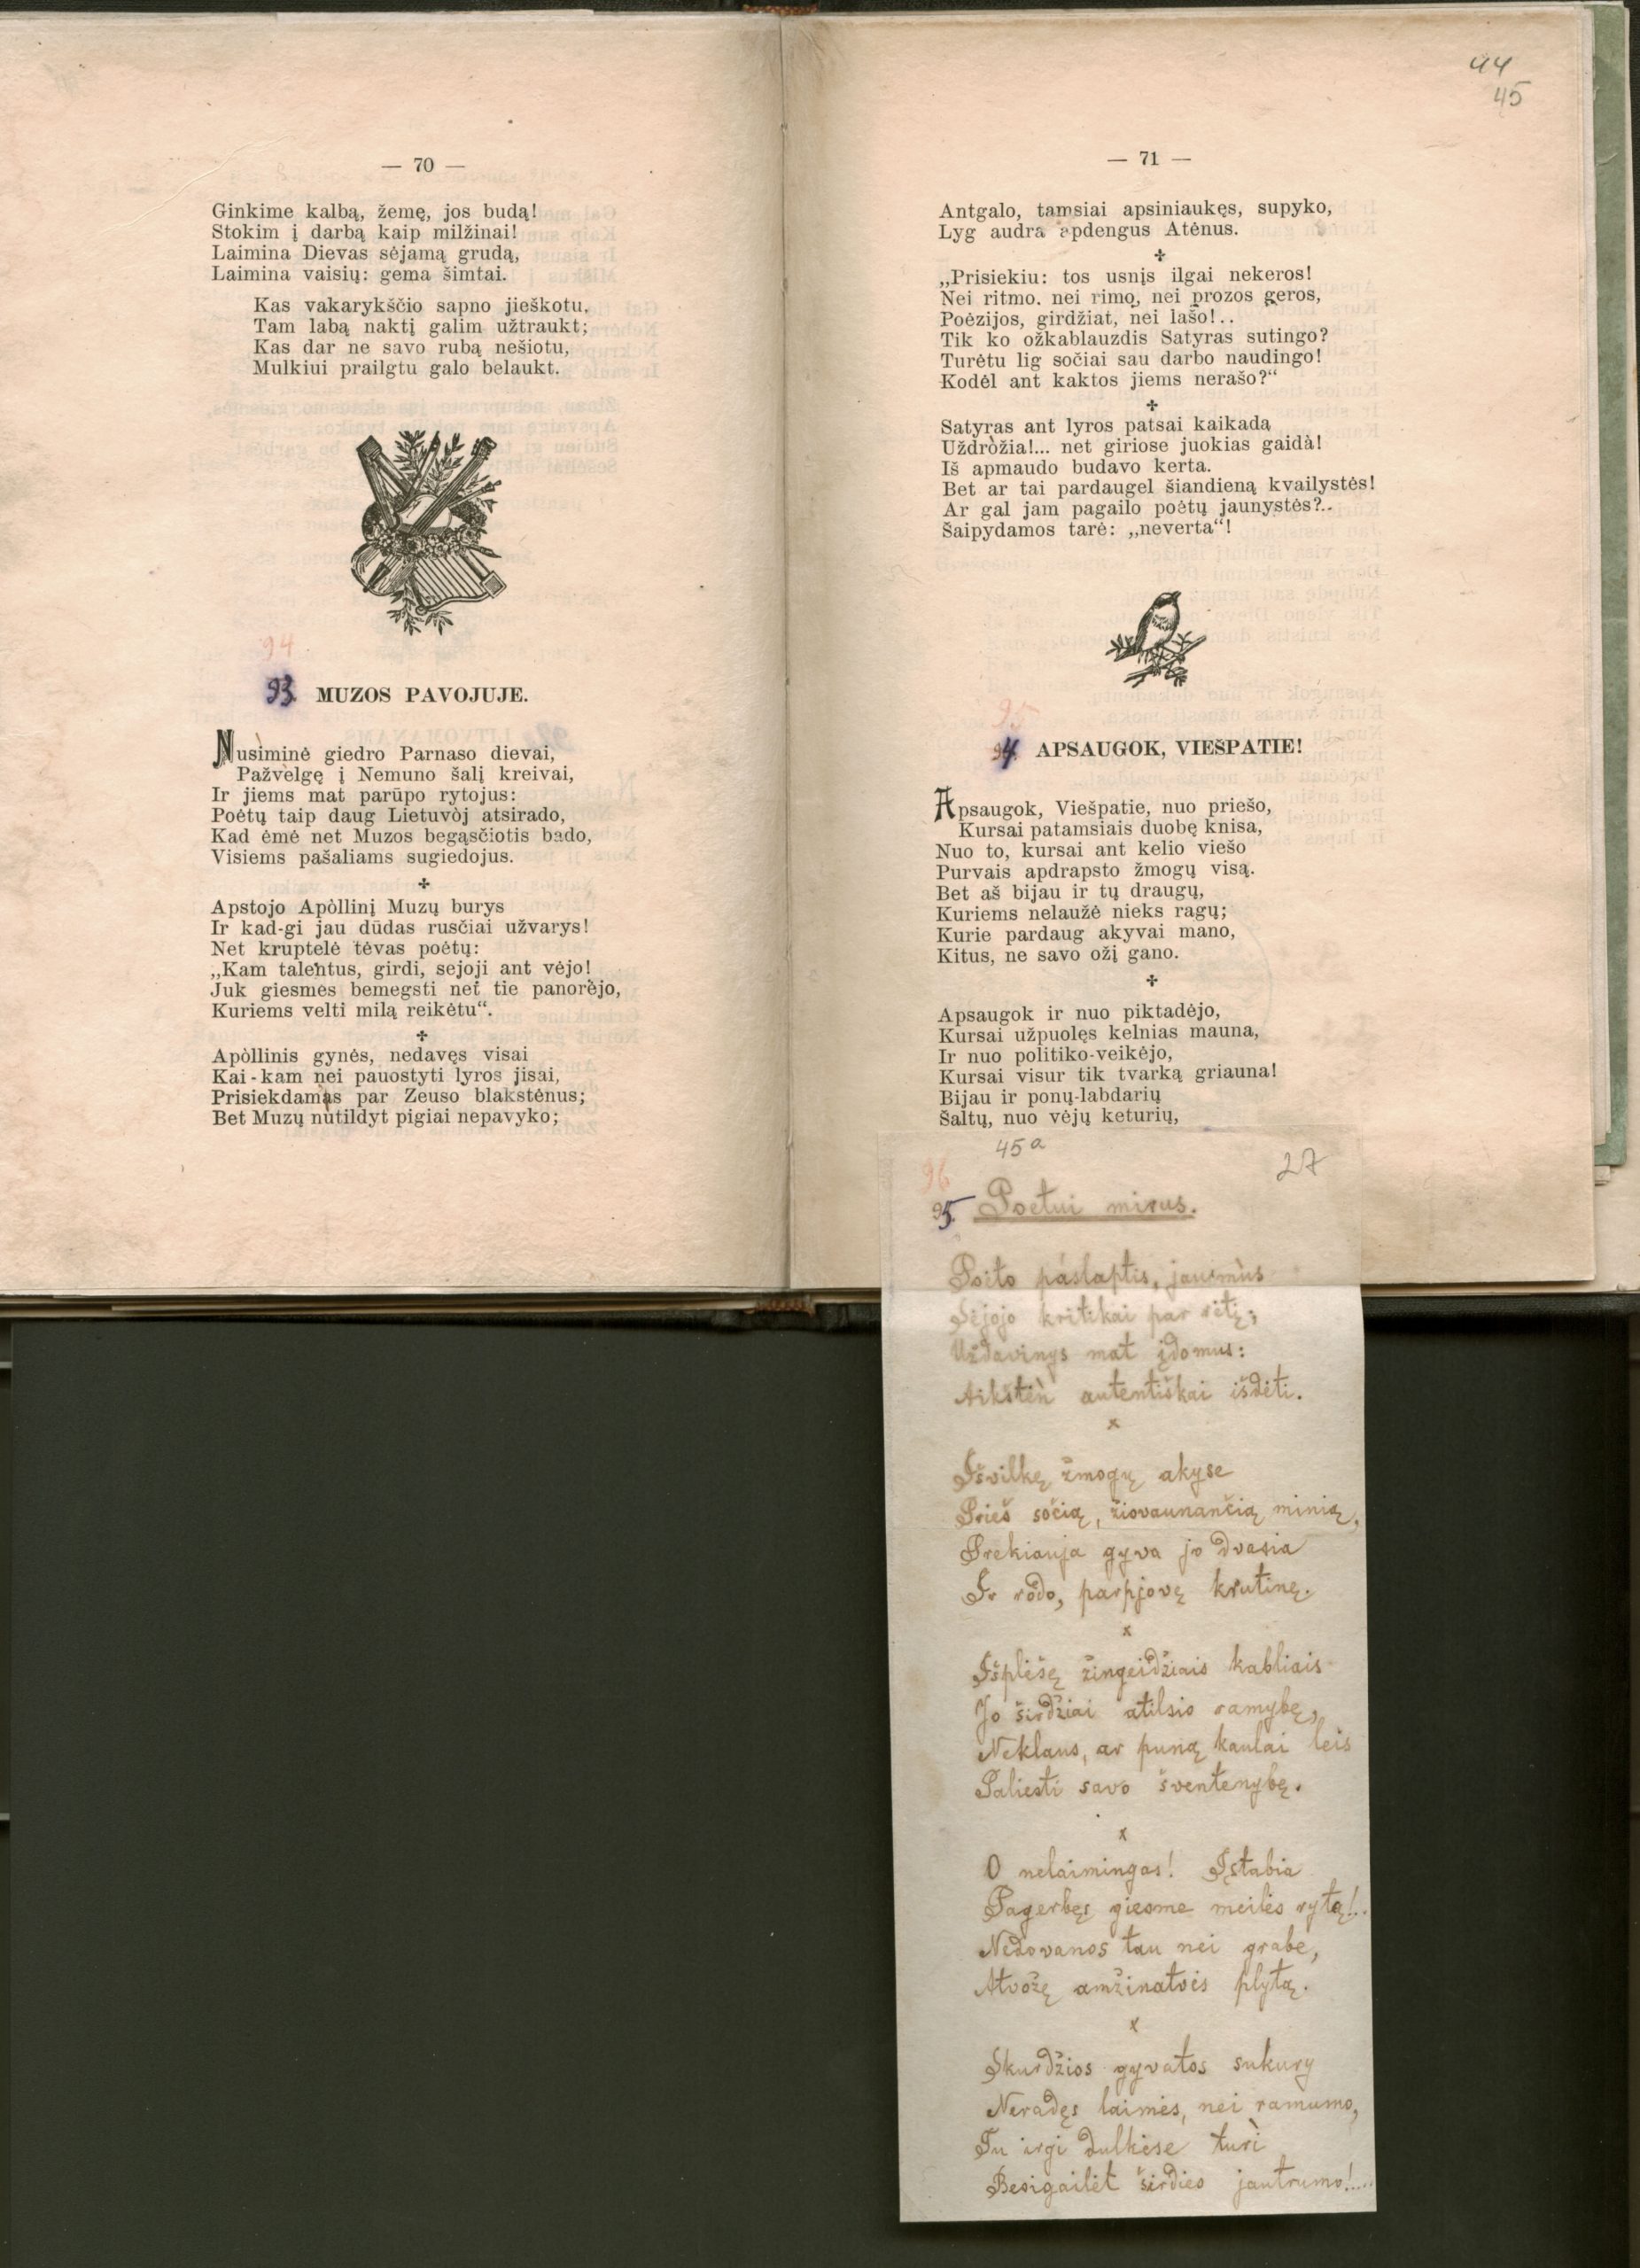 — 70 —
Ginkime kalbą, žemę, jos budą!
Stokim į darbą kaip milžinai!
Laimina Dievas sėjamą grudą,
Laimina vaisių: gema šimtai.
Kas vakarykščio sapno jieškotu,
Tam labą naktį galim užtraukt;
Kas dar ne savo rubą nešiotu,
Mulkiui prailgtu galo belaukt.
94
93. MUZOS PAVOJUJE.
Nusiminė giedro Parnaso dievai,
Pažvelgę į Nemuno šalį kreivai,
Ir jiems mat parūpo rytojus:
Poėtų taip daug Lietuvòj atsirado,
Kad ėmė net Muzos begąsčiotis bado,
Visiems pašaliams sugiedojus.
✢
Apstojo Apòllinį Muzų burys
Ir kad-gi jau dūdas rusčiai užvarys!
Net kruptelė tėvas poėtų:
„Kam talentus, girdi, sejoji ant vėjo!
Juk giesmės bemegsti net tie panorėjo,
Kuriems velti milą reikėtu“.
✢
Apòllinis gynės, nedavęs visai
Kai-kam nei pauostyti lyros jisai,
Prisiekdamas par Zeuso blakstėnus;
Bet Muzų nutildyt pigiai nepavyko;
44
45
— 71 —
Antgalo, tamsiai apsiniaukęs, supyko,
Lyg audra apdengus Atėnus.
✢
„Prisiekiu: tos usnįs ilgai nekeros!
Nei ritmo, nei rimo, nei prozos geros,
Poėzijos, girdžiat, nei lašo!..
Tik ko ožkablauzdis Satyras sutingo?
Turėtu lig sočiai sau darbo naudingo!
Kodėl ant kaktos jiems nerašo?“
✢
Satyras ant lyros patsai kaikadą
Uždròžia!... net giriose juokias gaidà!
Iš apmaudo budavo kerta.
Bet ar tai pardaugel šiandieną kvailystės!
Ar gal jam pagailo poėtų jaunystės?..
Šaipydamos tarė: „neverta“!
95
94 APSAUGOK, VIEŠPATIE!
Apsaugok, Viešpatie, nuo priešo,
Kursai patamsiais duobę knisa,
Nuo to, kursai ant kelio viešo
Purvais apdrapsto žmogų visą.
Bet aš bijau ir tų draugų,
Kuriems nelaužė nieks ragų;
Kurie pardaug akyvai mano,
Kitus, ne savo ožį gano.
✢
Apsaugok ir nuo piktadėjo,
Kursai užpuolęs kelnias mauna,
Ir nuo politiko-veikėjo,
Kursai visur tik tvarką griauna!
Bijau ir ponų-labdarių
Šaltų, nuo vėjų keturių,
45a
27
96
95. Poetui mirus.
Poėto paslaptis, jausmùs
Sėjojo kritikai par sėtį;
Uždavinys mat įdomus:
Aikštėn autentiškai išdėti.
x
Išvilkę žmogų akyse
Prieš sočią, žiovaunančią minią,
Prekiauja gyva jo dvasia
Ir ròdo, parpjovę krutinę.
x
Išplėšę žingeidžiais kabliais
Jo širdžiai atilsio ramybę,
Neklaus, ar puną kaulai leis
Paliesti savo šventenybę.
x
O nelaimingas! Įstabia
Pagerbęs giesme meilės rytą!..
Nedovanos tau nei grabe,
Atvožę amžinatvės plytą.
x
Skurdžios gyvatos sukury
Neradęs laimės, nei ramumo,
Tu irgi dulkėse turì
Besigailėt širdies jautrumo!....